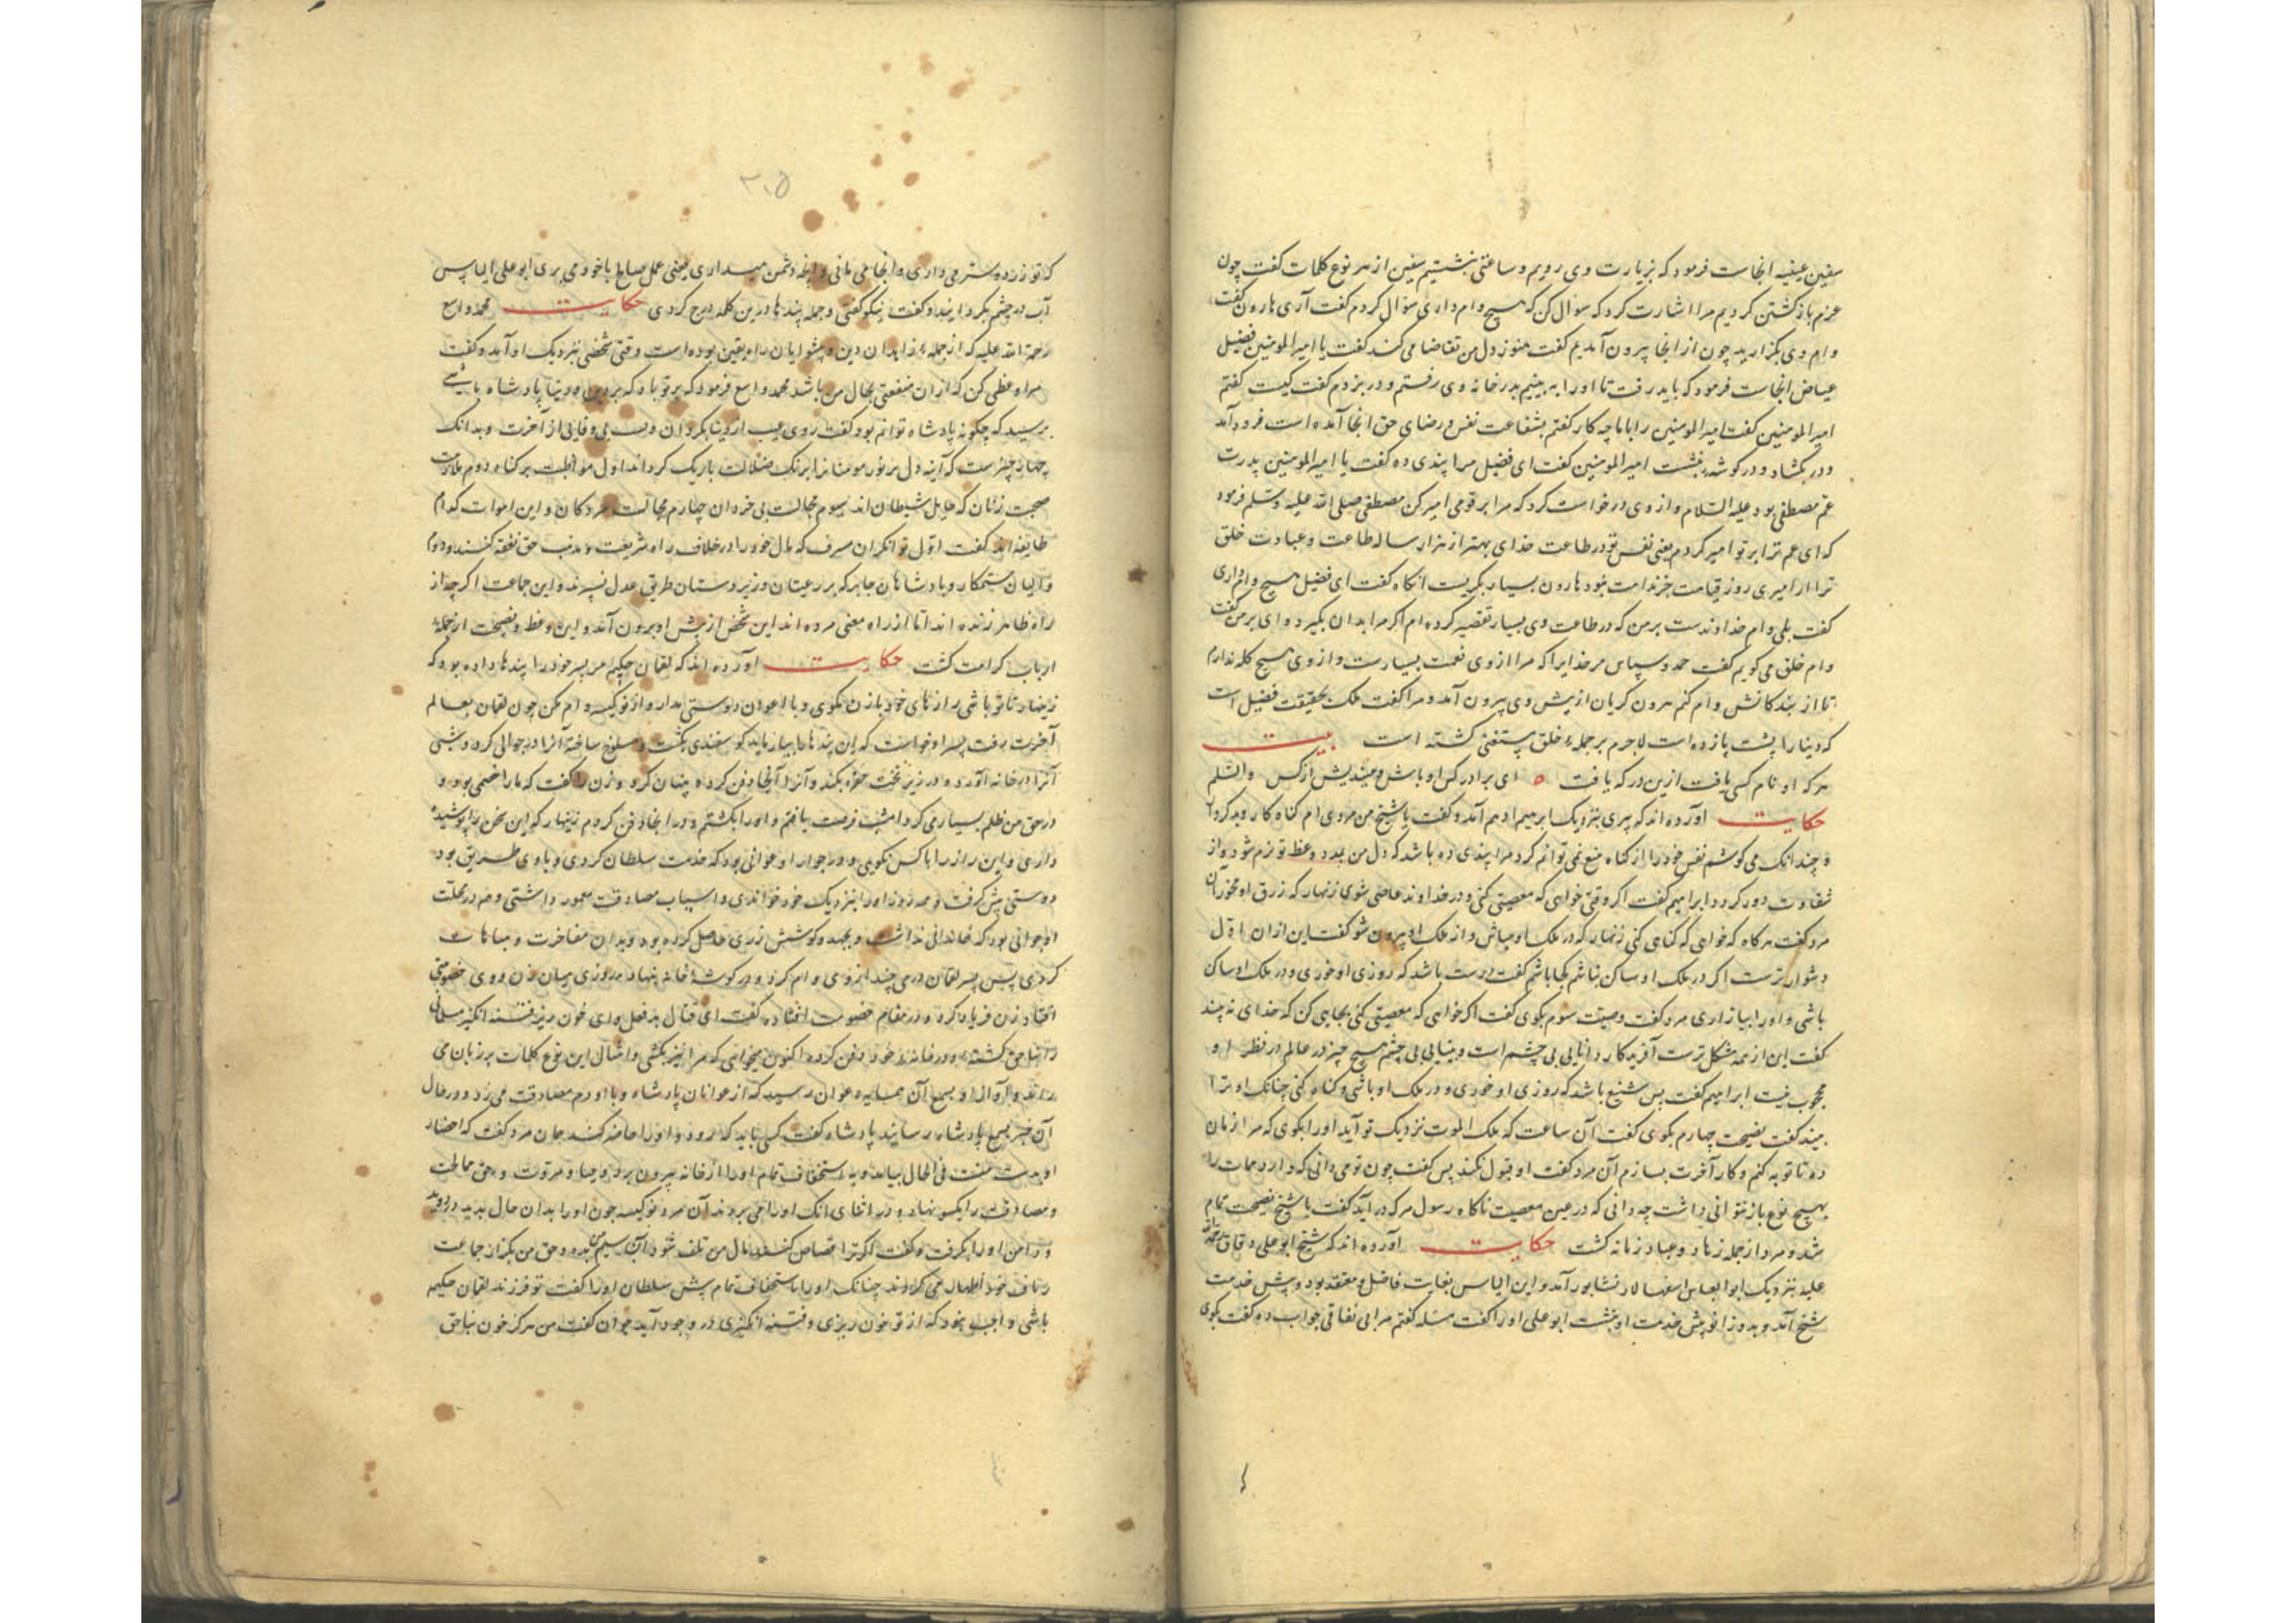 سفین عیفیه انجاست فرمود که بزیارت وی رویم و ساعتی بنشستیم سفین از هر نوع کلمات گفت چون
عزم بازگشتن کردیم مرا اشارت کرد که سؤال کن که هیچ وام داری سؤال کردم گفت آری هارون گفت
وام وی بگزارید چون از انجا بیرون آمدیم گفت هنوز دل من تقاضا می کند گفت یا امیرالمومنین فضیل
عیاض انجاست فرمود که باید رفت تا او را به بینیم بدر خانه وی رفتم و در بزدم گفت کیست گفتم
امیرالمومنین گفت امیرالمومنین را با ما چه کار گفتم بشفاعت نفس و رضای حق انجا آمده است فرود آمد
و در بگشاد و در گوشه بنشست امیرالمومنین گفت ای فضیل مرا پندی ده گفت یا امیرالمومنین پدرت
عم مصطفی بود علیه السلام و از وی درخواست کرد که مرا بر قومی امیر کن مصطفی صلی الله علیه وسلم فرمود
که ای عم ترا بر تو امیر کردم یعنی نفس تو در طاعت خدای بهتر از هزار ساله طاعت و عبادت خلق
ترا از امیری روز قیامت جز ندامت نبود هارون بسیار بگریست آنگاه گفت ای فضیل هیچ وام داری
گفت بلی وام خداوندست بر من که در طاعت وی بسیار تقصیر کرده ام اگر مرا بدان بگیرد وای بر من گفت
وام خلق می گویم گفت حمد و سپاس مر خدایرا که مرا از وی نعمت بسیارست و از وی هیچ گله ندارم
تا از بندگانش وام کنم هرون گریان از پیش وی بیرون آمد و مرا گفت ملک بحقیقت فضیل است
که دنیا را پشت پا زده است لاجرم بر جمله خلق مستغنی گشته است بیت
هر که او نام کسی یافت ازین درکه یافت ای برادر کس او باش و میندیش از کس والسلم
حکایت آورده اند که پیری بنزدیک ابرهیم ادهم آمد و گفت یا شیخ من مردی ام گناه کار و بدکردار
و چندانک می کوشم نفس خود را از گناه منع نمی توانم کرد مرا پندی ده باشد که دل من بمدد وعظ تو نرم شود و از
شقاوت دور گردد ابراهیم گفت اگر وقتی خواهی که معصیتی کنی و در خداوند عاصی شوی زنهار که رزق او مخور آن
مرد گفت هر گاه که خواهی که گناهی کنی زنهار که در ملک او مباش و از ملک او بیرون شو گفت این از ان اول
دشوارترست اگر در ملک او ساکن نباشم کجا باشم گفت درست باشد که روزی او خوری و در ملک او ساکن
باشی و او را بیازاری مرد گفت وصیت سوم بگوی گفت اگر خواهی که معصیتی کنی بجایی کن که خدای نه بیند
گفت این از همه مشکل ترست آفریدکار دانایی بی چشم است و بینایی بی چشم هیچ چیز در عالم در نظر او
محجوب نیست ابراهیم گفت پس شنیع باشد که روزی او خوری و در ملک او باشی و گناه کنی چنانک او ترا
بیند گفت نصیحت چهارم بگوی گفت آن ساعت که ملک الموت نزدیک تو آید او را بگوی که مرا زمان
ده تا توبه کنم و کار آخرت بسازم آن مرد گفت او قبول نکند پس گفت چون تو می دانی که وارد ممات را
بهیچ نوع باز نتوانی داشت چه دانی که در عین معصیت ناگاه رسول مرگ در آید گفت یا شیخ نصیحت تمام
شد و مرد از جمله زهاد و عباد زمانه گشت حکایت آورده اند که شیخ ابو علی دقاق رحمةالله
علیه بنزدیک ابوالعباس اسفهالار نشابور آمد و این الیاس بغایت فاضل و معتقد بود و پیش خدمت
شیخ آمد و بدو زانو پیش خدمت او بنشست ابو علی او را گفت مسله گفتم مرا بی نفاقی جواب ده گفت بگوی
۲۰۵
که تو زر دوستر می داری و انجا می مانی و انچه دشمن میداری یعنی عمل صالح با خود می بری ابو علی الیاس
آب در چشم بگردانید و گفت نیکو گفتی و جمله پندها درین کلمه درج کردی حکایت محمد واسع
رحمة الله علیه که از جمله زاهدان دین و پیشوایان راه یقین بوده است وقتی شخصی بنزدیک او آمد و گفت
مرا وعظی کن که از ان منفعتی بحال من باشد محمد واسع فرمود که بر تو باد که در دین و دنیا پادشاه باشی
پرسید که چگونه پادشاه توانم بود گفت روی عیب از دنیا بگردان و بی وفایی از آخرت و بدانک
چهار چیزست که آینه دل پر نور مومنانرا برنگ ضلالت تاریک گرداند اول مواظبت بر گناه دوم ملازمت
صحبت زنان که حبایل شیطان اند سیوم مجالست بی خردان چهارم مجالست مردگان و این اموات کدام
طایفه اند گفت اول توانگران مسرف که مال خود را در خلاف راه شریعت و مذهب حق نفقه کنند و دوم
والیان ستمکار و پادشاهان جابر که بر رعیتان و زیردستان طریق عدل نسپرند و این جماعت اگر چه از
راه ظاهر زنده اند اما از راه معنی مرده اند این شخص از پیش او بیرون آمد و این وعظ و نصیحت از جمله
ارباب کرامت گشت حکایت آورده اند که لقمان حکیم مر پسر خود را پندها داده بود که
زینهار تا تو باشی رازهای خود با زن نگوی و با اعوان دوستی مدار و از نوکیسه وام مکن چون لقمان بعالم
آخرت رفت پسر او خواست که این پندها را بیازماید گوسفندی بکشت و مسلوخ ساخته آنرا در جوالی کرد و شبی
آنرا در خانه آورد و در زیر تخت حفره بکند و آنرا آنجا دفن کرده پنهان کرد و زن را گفت که ما را خصمی بود و
در حق من ظلم بسیار می کرد امشب فرصت یافتم و او را بکشتم و در انجا دفن کردم زینهار که این سخن را پوشیده
داری و این راز را با کس نگویی و در جوار او عوانی بود که خدمت سلطان کردی و با وی طریق بود
دوستی پیش گرفت و همه روز او را بنزدیک خود خواندی و اسباب مصادقت معمور داشتی و هم در محلت
او جوانی بود که خاندانی نداشت و بجهد و کوشش زری حاصل کرده بود و بدان مفاخرت و مباهات
کردی پس پسر لقمان درمی چند از وی وام کرد و در گوشه خانه بنهاد روزی میان زن و وی خصومتی
افتاد زن فریاد کرد و در مقام خصومت افتاده گفت ای قتال بدفعل وای خون ریز فتنه انگیز مسلمانی
را بناحق کشته و در خانه خود دفن کرده اکنون میخواهی که مرا نیز بکشی و امثال این نوع کلمات بر زبان می
راند و آواز او بسمع آن همسایه عوان رسید که از عوانان پادشاه و با او دم مصادقت می زد و در حال
آن خبر بسمع پادشاه رسانید پادشاه گفت کسی باید که رود و او را حاضر کند همان مرد گفت که احضار
او بدست منست فی الحال بیامد و به استخفاف تمام او را از خانه بیرون برد و حیا و مروت و حق ممالحت
و مصادقت را یکسو نهاد و در اثنای انک او را می بردند آن مرد نوکیسه چون او را بدان حال بدید دوید
و دامن او را بگرفت و گفت اگر ترا قصاص کنند مال من تلف شود آن سیم من بده و حق من بگزار جماعت
خود اظهار می کردند چنانک او را باستخفاف تمام پیش سلطان او را گفت تو فرزند لقمان حکیم
باشی و اجب نبود که از تو خون ریزی و فتنه انگیزی در وجود آید جوان گفت من هرگز خون بناحق